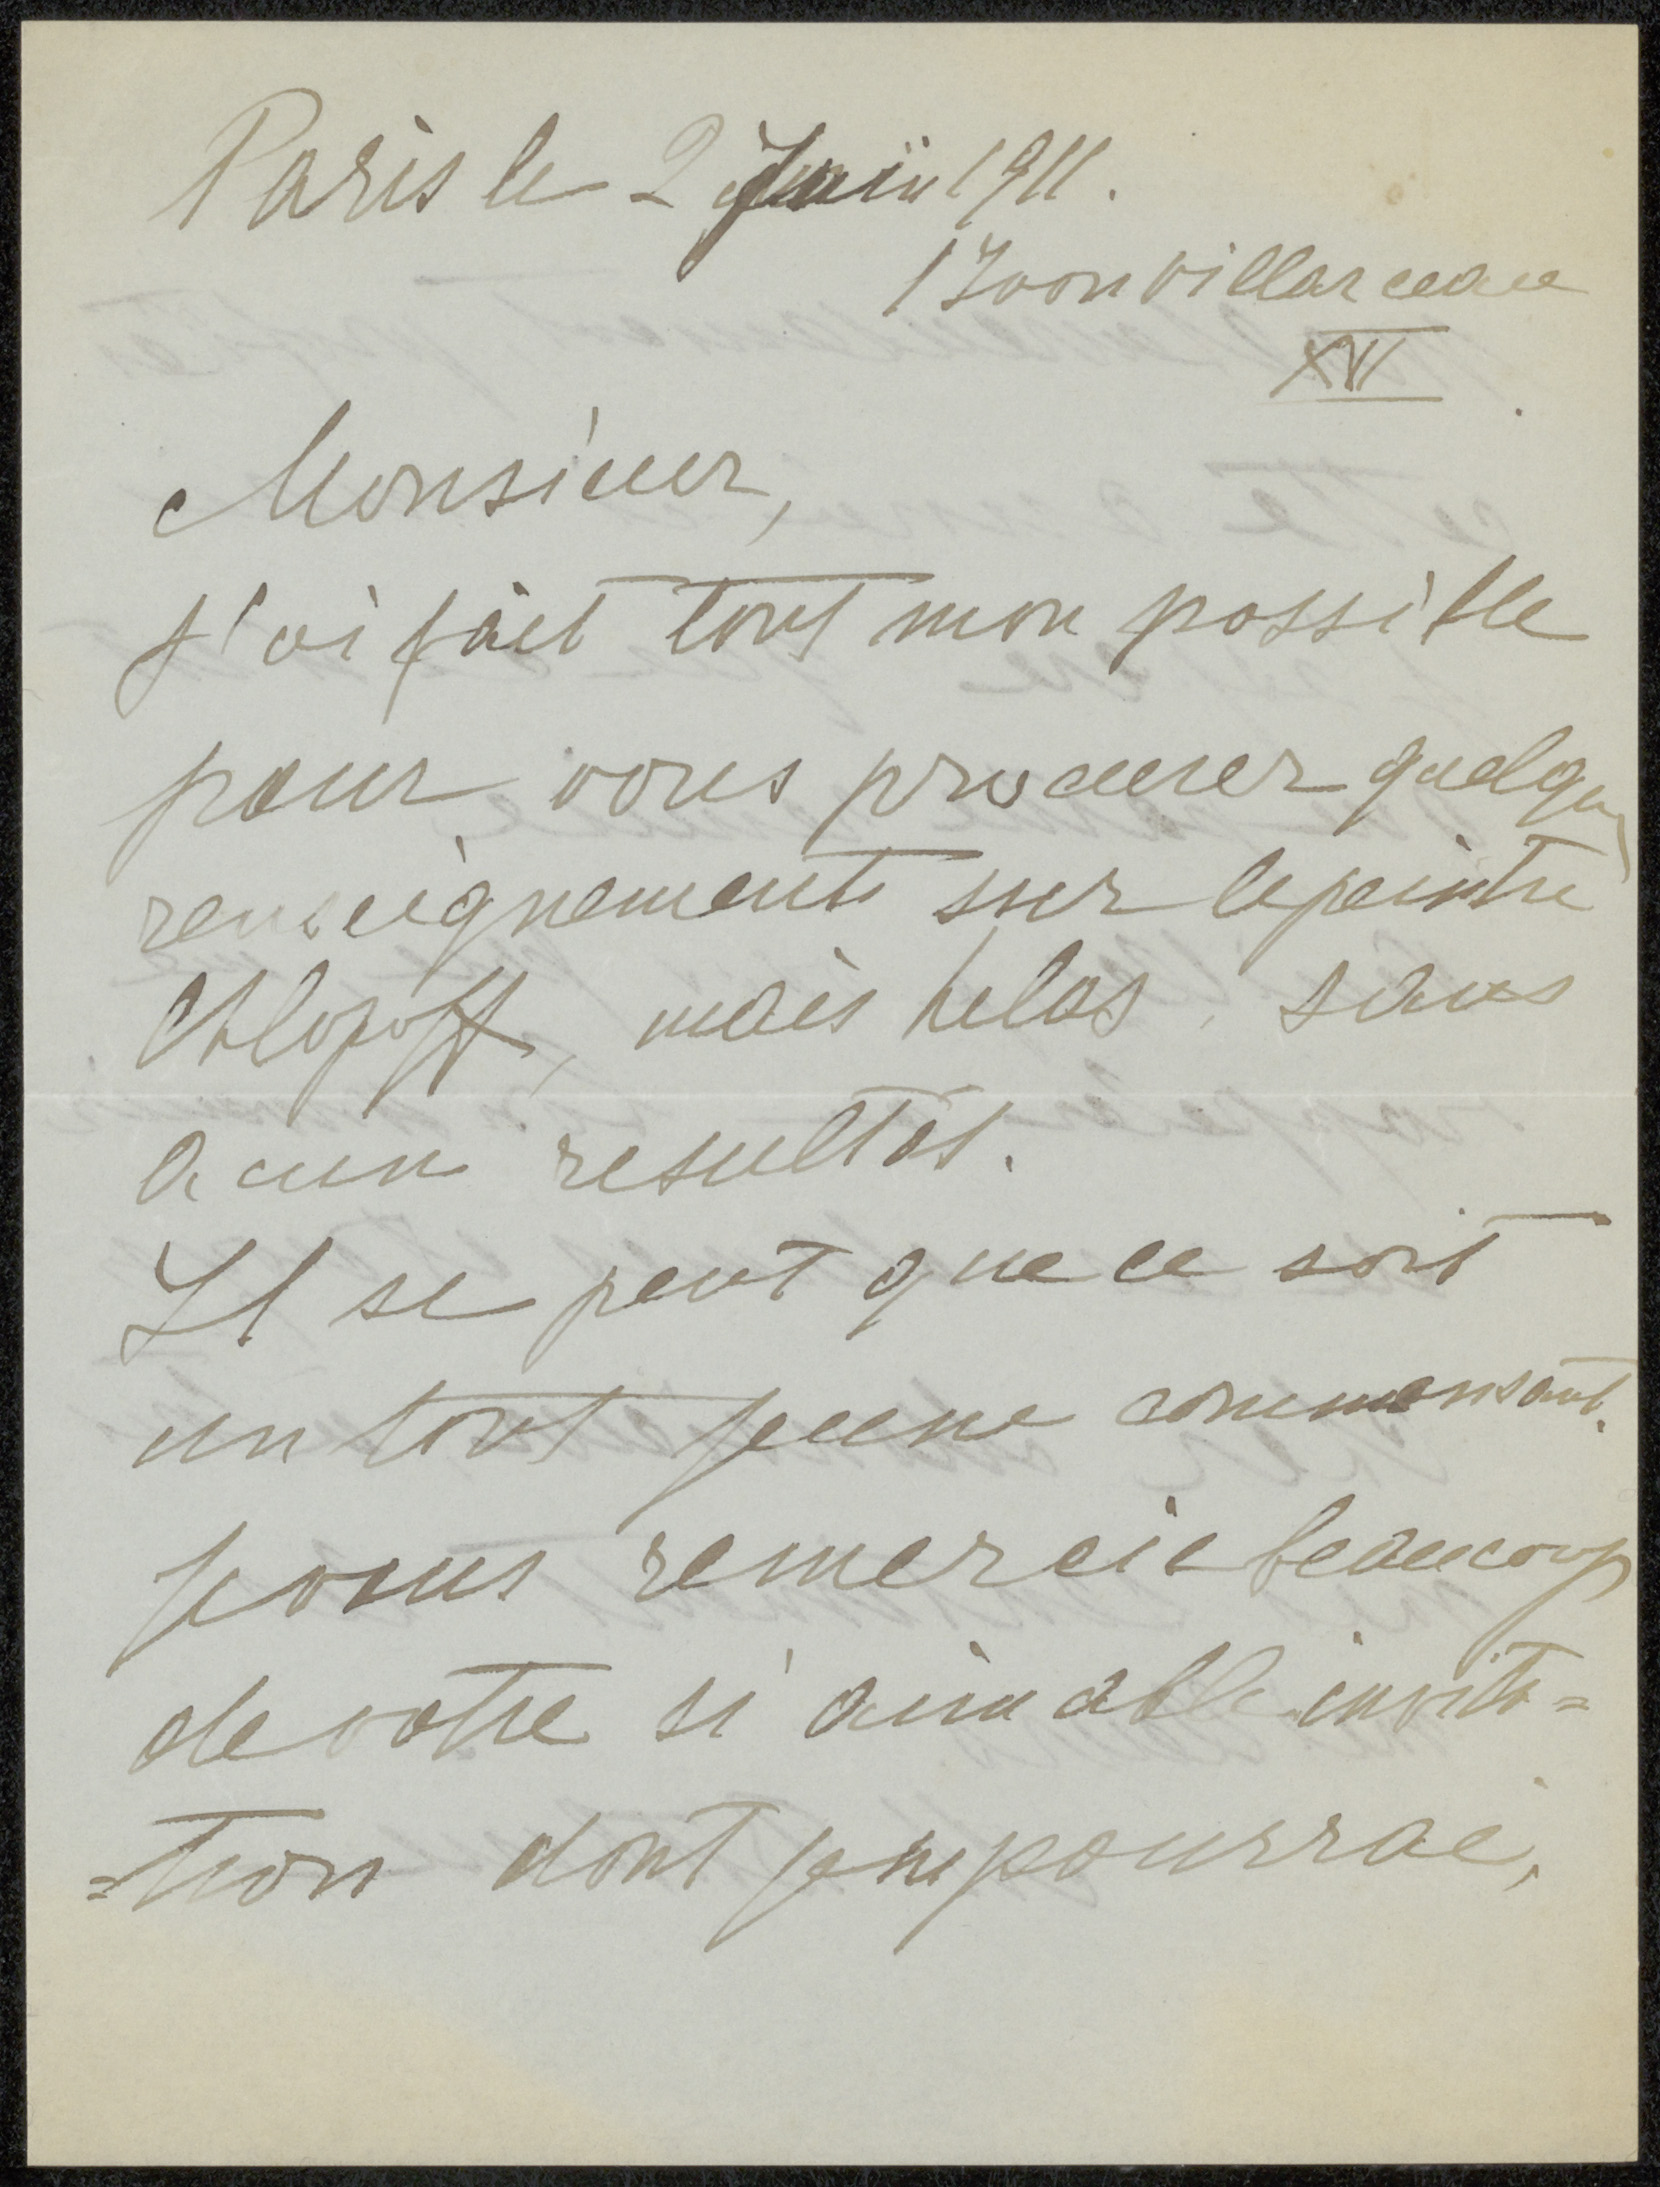 Paris le 2 Juin 1911.
1 Yvon Villarceau
XVI
Monsieur,
j'ai fait tout mon possible
pour vous procurer quelques
renseignements sur le peintre
Chlopoff, mais helas, sans
aucun resultat.
Il se peut que ce soit
un tout jeune commensant.
Je vous remercie beaucoup
de votre si aimable invita=
=tion dont je ne pourrai,